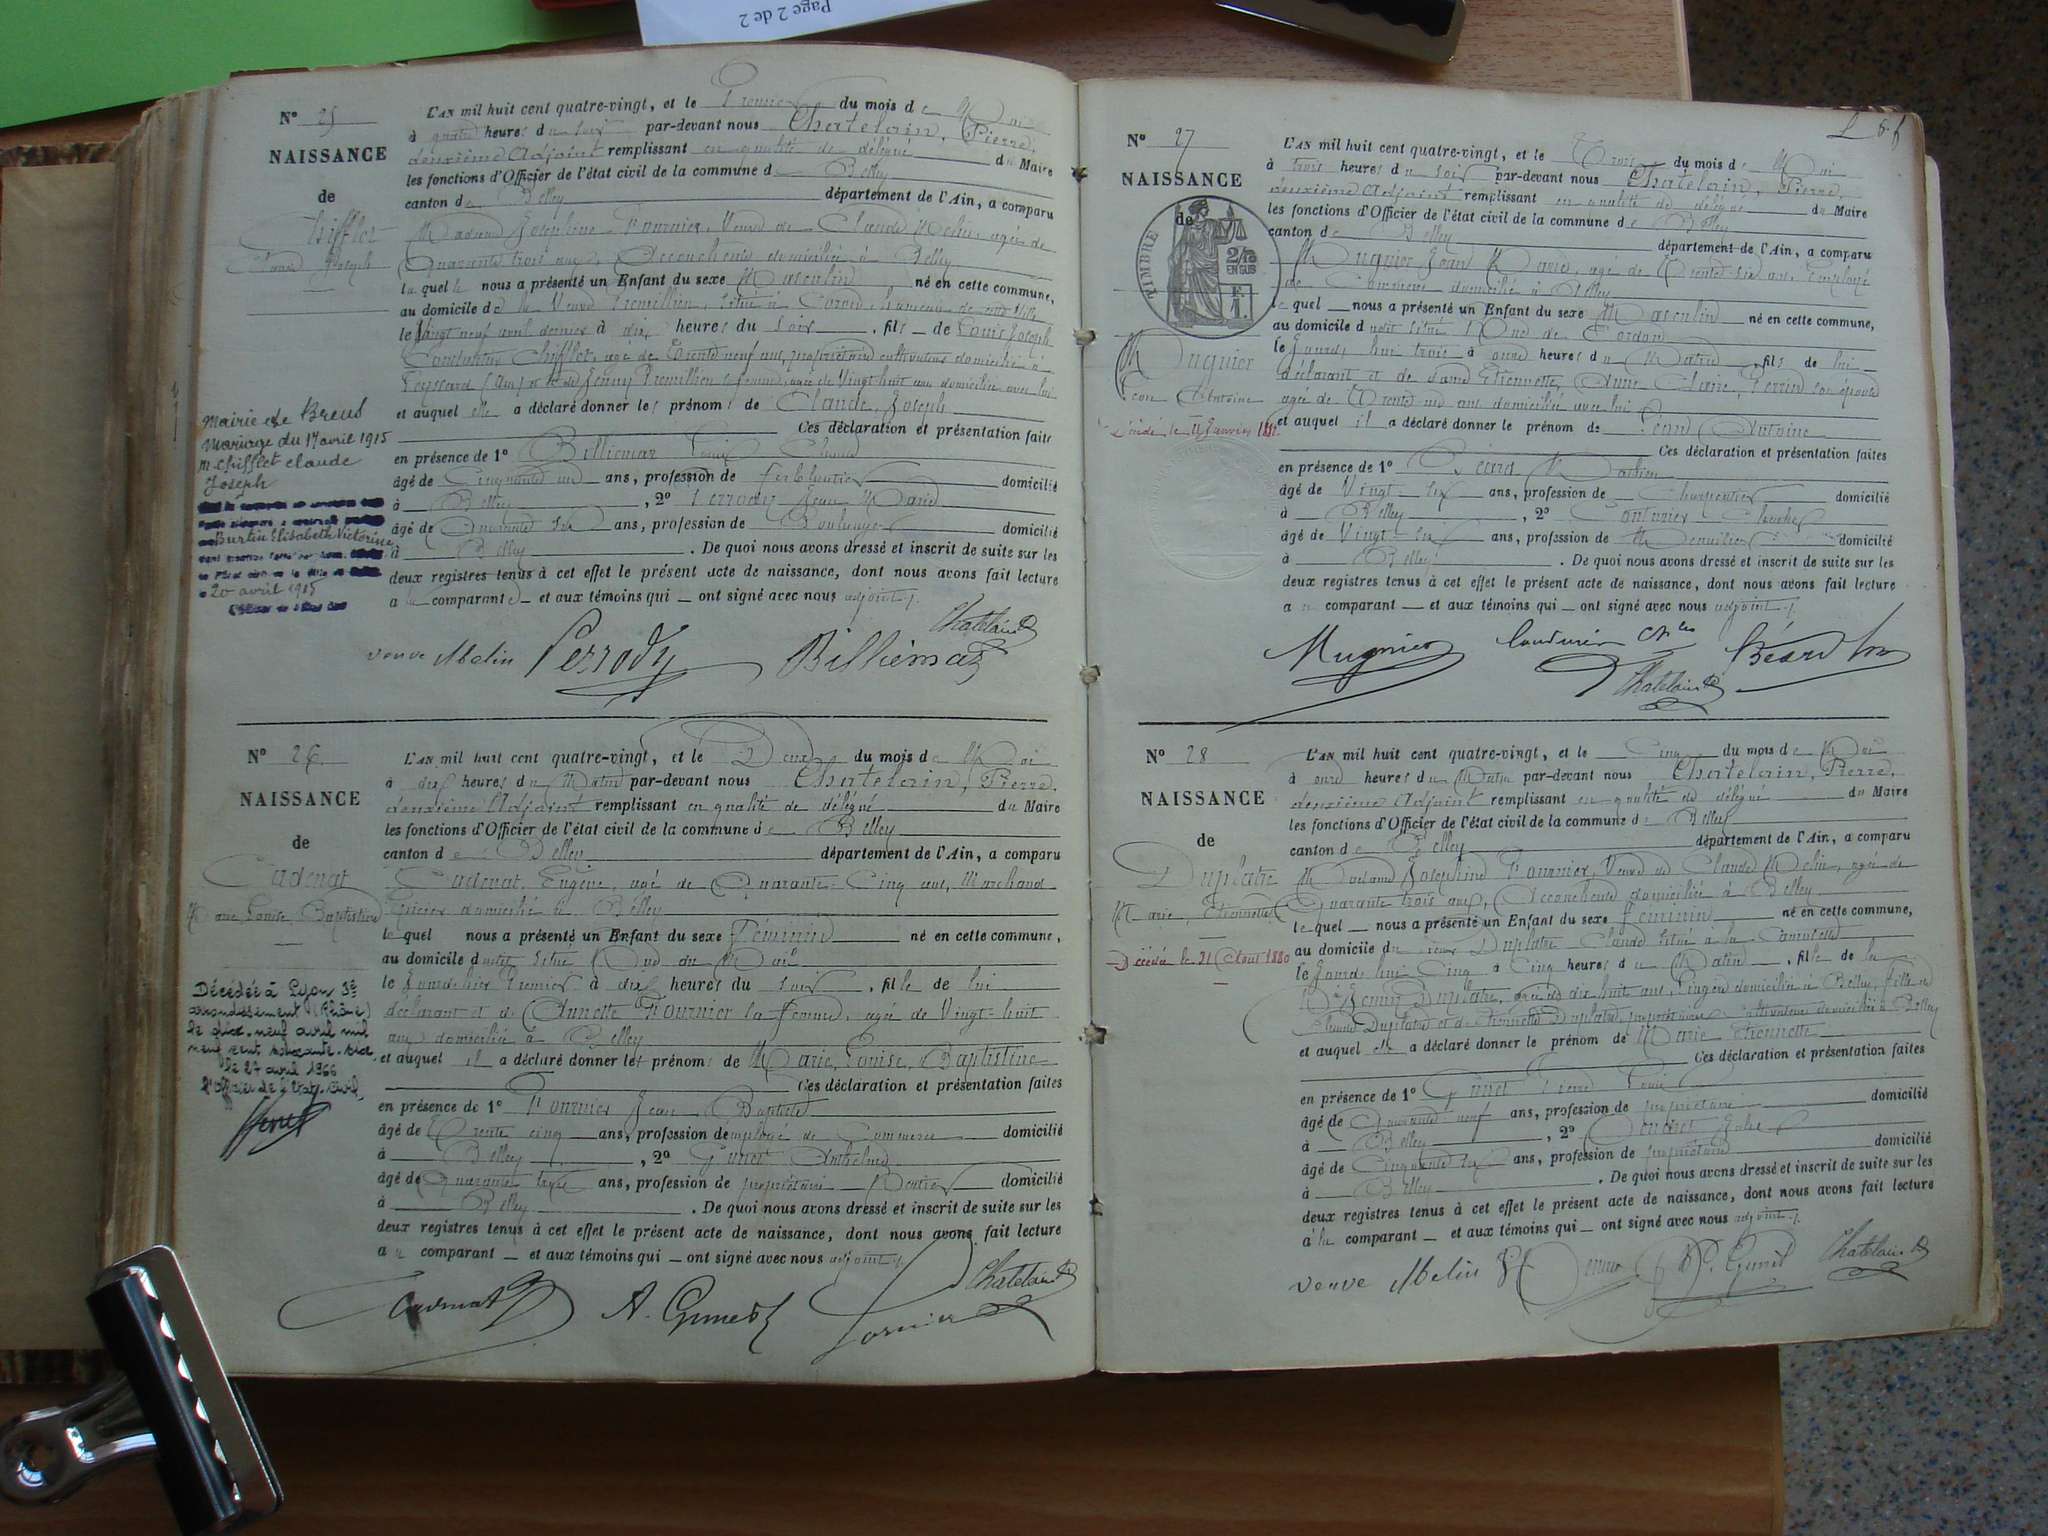 Page 2 de 2
N° 25
NAISSANCE
de
Chifflet
Claude Joseph
L'AN mil huit cent quatre-vingt, et le Premier du mois de Mai
à quatre heures du soir par-devant nous Chatelain, Pierre,
deuxième Adjoint remplissant en qualité de délégué du Maire
les fonctions d'Officier de l'état civil de la commune de Belley
canton de Belley département de l'Ain, a comparu
Madame Joséphine Fournier, Veuve de Claude Melin, agée de
Quarante trois ans, Accoucheuse domiciliée à Belley
laquelle nous a présenté un Enfant du sexe Masculin né en cette commune,
au domicile de la Veuve Premillieu, situé à Coron, hameau de cette Ville
le Vingt neuf avril dernier à dix heures du soir, fils de Louis Joseph
Constantin Chifflet, agé de Trente neuf ans, propriétaire cultivateur domicilié à
Peyssard (Ain) et de Jenny Premillieu sa femme, agée de Vingt huit ans domiciliée avec lui
et auquel elle a déclaré donner les prénoms de Claude, Joseph
Ces déclaration et présentation faites
en présence de 1° Billiemaz Louis
âgé de Cinquante un ans, profession de Ferblantier domicilié
à Belley, 2° Perrody Jean Marie
âgé de Quarante six ans, profession de Boulanger domicilié
à Belley. De quoi nous avons dressé et inscrit de suite sur les
deux registres tenus à cet effet le présent acte de naissance, dont nous avons fait lecture
a la comparante et aux témoins qui ont signé avec nous adjoint /.
Mairie de
Mariage du 17 avril 1915
M. Chifflet Claude
Joseph
Burtin Elisabeth Victorine
20 avril 1915
Chatelain
veuve Melin Perrody Billiemaz
N° 26
NAISSANCE
de
Cadenat
Marie Louise Baptistine
L'AN mil huit cent quatre-vingt, et le Deux du mois de Mai
à dix heures du Matin par-devant nous Chatelain, Pierre,
deuxième Adjoint remplissant en qualité de délégué du Maire
les fonctions d'Officier de l'état civil de la commune de Belley
canton de Belley département de l'Ain, a comparu
Cadenat, Eugène, agé de Quarante-Cinq ans, Marchand
Epicier domicilié à Belley
lequel nous a présenté un Enfant du sexe Féminin né en cette commune,
au domicile dudit situé Rue du Mail
le Jour d'hier Premier à dix heures du soir, fille de lui
déclarant et de Annette Fournier sa femme, agée de Vingt-huit
ans domiciliée à Belley
et auquel il a déclaré donner les prénoms de Marie, Louise, Baptistine
Ces déclaration et présentation faites
en présence de 1° Fournier Jean Baptiste
âgé de Trente cinq ans, profession d'employé de Commerce domicilié
à Belley, 2° Gunet Anthelme
âgé de Quarante trois ans, profession de propriétaire Rentier domicilié
à Belley. De quoi nous avons dressé et inscrit de suite sur les
deux registres tenus à cet effet le présent acte de naissance, dont nous avons fait lecture
a u comparant et aux témoins qui ont signé avec nous adjoint /.
Décédée à Lyon 3e
arrondissement (Rhône)
le dix-neuf avril mil
neuf cent soixante-six
le 27 avril 1966
l'Officier de l'Etat-Civil,
Cadenat A. Gunet Fournier Chatelain
N° 27
NAISSANCE
de
TIMBRE
2/10
EN SUS
F.
1.
Mugnier
Jean Antoine
Décédé le 11 Janvier 1881
L'AN mil huit cent quatre-vingt, et le Trois du mois de Mai
à trois heures du soir par-devant nous Chatelain, Pierre,
deuxième Adjoint remplissant en qualité de délégué du Maire
les fonctions d'Officier de l'état civil de la commune de Belley
canton de Belley département de l'Ain, a comparu
Mugnier Jean Marie, agé de Trente six ans, Employé
de Commerce domicilié à Belley
lequel nous a présenté un Enfant du sexe Masculin né en cette commune,
au domicile dudit situé Rue de Cordon
le Jourd'hui trois à onze heures du Matin, fils de lui
déclarant et de dame Etiennette, Anne Claire, Perrin son épouse
agée de Trente un ans domiciliée avec lui
et auquel il a déclaré donner le prénom de Jean Antoine
Ces déclaration et présentation faites
en présence de 1° Béard
âgé de Vingt six ans, profession de Charpentier domicilié
à Belley, 2° Couturier Charles
âgé de Vingt six ans, profession de Menuisier domicilié
à Belley. De quoi nous avons dressé et inscrit de suite sur les
deux registres tenus à cet effet le présent acte de naissance, dont nous avons fait lecture
a u comparant et aux témoins qui ont signé avec nous adjoint /.
Mugnier Couturier Chles Béard
Chatelain
N° 28
NAISSANCE
de
Duplatre
Marie, Etiennette
Décédée le 31 Août 1880
L'AN mil huit cent quatre-vingt, et le Cinq du mois de Mai
à onze heures du Matin par-devant nous Chatelain, Pierre,
deuxième Adjoint remplissant en qualité de délégué du Maire
les fonctions d'Officier de l'état civil de la commune de Belley
canton de Belley département de l'Ain, a comparu
Madame Joséphine Fournier, Veuve de Claude Melin, agée de
Quarante trois ans, Accoucheuse domiciliée à Belley
lequel nous a présenté un Enfant du sexe Féminin né en cette commune,
au domicile du sieur Duplatre Claude situé à la
le Jourd'hui Cinq à Cinq heures du Matin, fille de la
Jenny Duplatre, agée de dix huit ans, Lingère domiciliée à Belley, fille de
Claude Duplatre et de Etiennette Duplatre, propriétaires Cultivateurs domiciliés à Belley
et auquel elle a déclaré donner le prénom de Marie Etiennette
Ces déclaration et présentation faites
en présence de 1° Gunet Pierre Louis
âgé de Quarante neuf ans, profession de propriétaire domicilié
à Belley, 2°
âgé de Cinquante six ans, profession de propriétaire domicilié
à Belley. De quoi nous avons dressé et inscrit de suite sur les
deux registres tenus à cet effet le présent acte de naissance, dont nous avons fait lecture
à la comparant et aux témoins qui ont signé avec nous adjoint /.
veuve Melin P. Gunet Chatelain